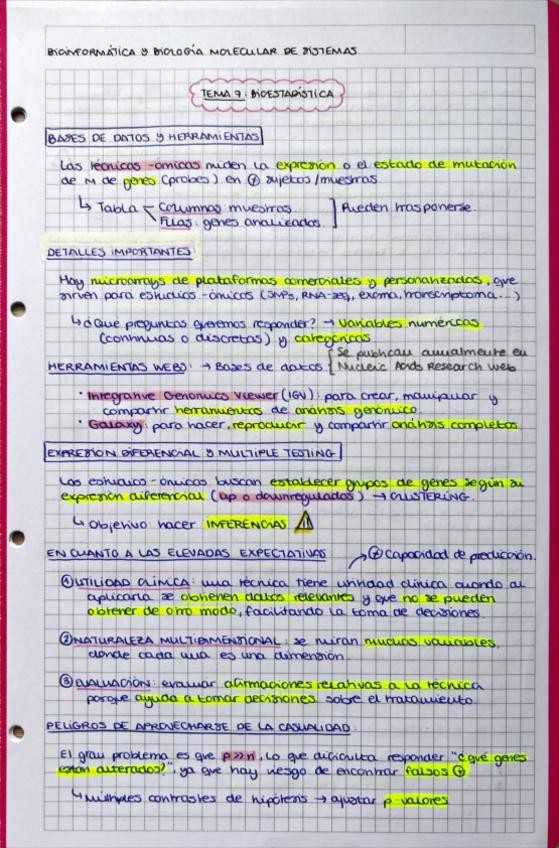 BIOINFORMÁTICA Y BIOLOGÍA MOLECULAR DE SISTEMAS
TEMA 7: BIOESTADÍSTICA
BASES DE DATOS Y HERRAMIENTAS
Las técnicas -ómicas miden la expresión o el estado de mutación
de M de genes (probes) en ⊕ sujetos/muestras
↳ Tabla Columnas muestras ] Pueden trasponerse.
Filas: genes analizados
DETALLES IMPORTANTES:
Hay microarrays de plataformas comerciales y personalizados, que
sirven para estudios -ómicos (SNPs, RNA-seq, exoma, transcriptoma...)
↳ ¿Que preguntas queremos responder? → variables numéricas
(continuas o discretas) y categóricas
HERRAMIENTAS WEBS: → Bases de datos [ Se publican anualmente en
Nucleic Acids Research web
• Integrative Genomics Viewer (IGV): para crear, manipular y
compartir herramientas de análisis genómico
• Galaxy: para hacer, reproducir y compartir análisis completos
EXPRESIÓN DIFERENCIAL Y MULTIPLE TESTING
Los estudios -ómicos buscan establecer grupos de genes según su
expresión diferencial (up o downregulados) → CLUSTERING.
↳ Objetivo hacer INFERENCIAS ⚠
EN CUANTO A LAS ELEVADAS EXPECTATIVAS ⊕ Capacidad de predicción.
① UTILIDAD CLÍNICA: una técnica tiene utilidad clínica cuando al
aplicarla se obtienen datos relevantes y que no se pueden
obtener de otro modo, facilitando la toma de decisiones.
② NATURALEZA MULTIDIMENSIONAL: se miran muchas variables,
donde cada una es una dimensión.
③ EVALUACIÓN: evaluar afirmaciones relativas a la técnica
porque ayuda a tomar decisiones sobre el tratamiento.
PELIGROS DE APROVECHARSE DE LA CASUALIDAD:
El gran problema es que p>>n, lo que dificulta responder "¿qué genes
están alterados?", ya que hay riesgo de encontrar falsos ⊕
↳ Múltiples contrastes de hipótesis → ajustar p-valores